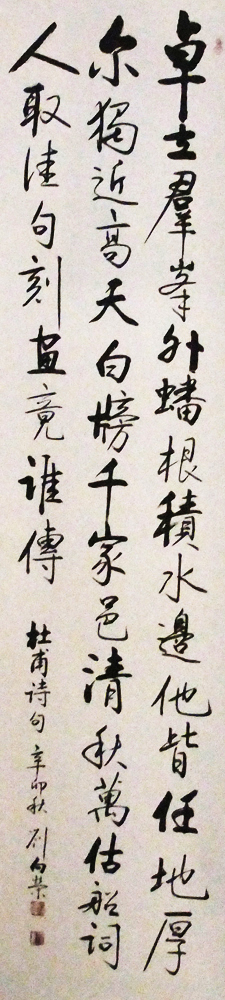 卓立羣峯外蟠根積水邊他皆任地厚
尔獨近高天白牓千家邑清秋萬估船詞
人取佳句刻畫竟誰傳
杜甫詩句 辛卯秋 刘向荣